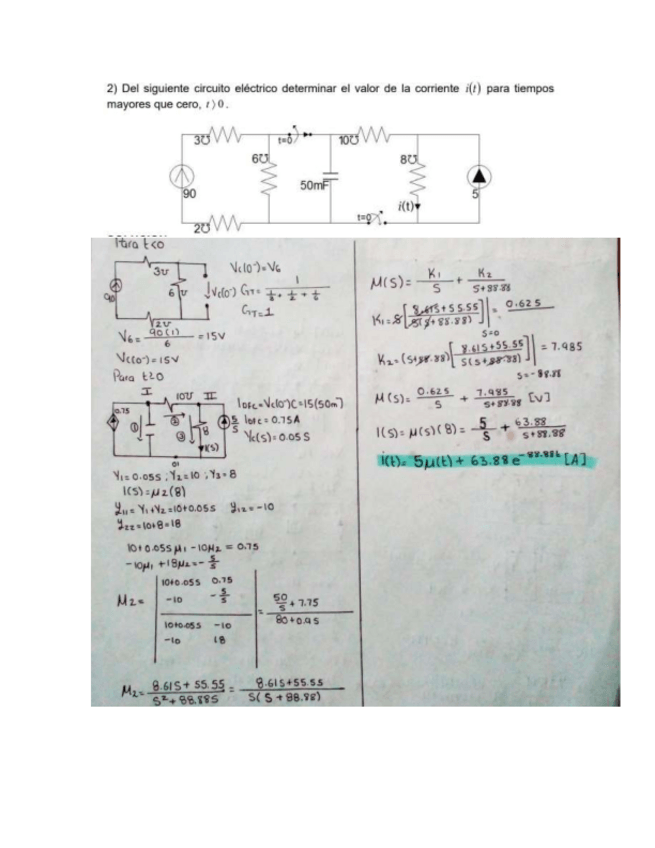 2) Del siguiente circuito eléctrico determinar el valor de la corriente i(t) para tiempos
mayores que cero, t⟩0.
3℧
t=0
10℧
6℧
8℧
50mF
90
5
i(t)
t=0
2℧
Para t<0
3℧
Vc(0⁻)=V6
90
6℧
Vc(0⁻)
GT= 1 / (1/3 + 1/2 + 1/6)
GT=1
2℧
V6= 90(1)/6 =15V
Vc(0⁻)=15V
Para t≥0
I
10℧
II
0.75
8
5/S
I(S)
Iofc=Vc(0⁻)C=15(50m)
Iofc=0.75A
Yc(s)=0.05S
Y1=0.05S ; Y2=10 ; Y3=8
I(S)=μ2(8)
Y11=Y1+Y2=10+0.05S Y12=-10
Y22=10+8=18
10+0.05Sμ1-10μ2=0.75
-10μ1+18μ2=-5/S
10+0.05S 0.75
-10 -5/S
M2= = 50/S+7.75
80+0.9S
10+0.05S -10
-10 18
M2= 8.61S+55.55 / S²+88.88S = 8.61S+55.55 / S(S+88.88)
M(S)= K1/S + K2/S+88.88
K1=S[8.61S+55.55 / S(S+88.88)]| = 0.625
S=0
K2=(S+88.88)[8.61S+55.55 / S(S+88.88)]| =7.985
S=-88.88
M(S)= 0.625/S + 7.985/S+88.88 [V]
I(S)=μ(S)(8)= 5/S + 63.88/S+88.88
i(t)=5μ(t)+63.88e^-88.88t [A]